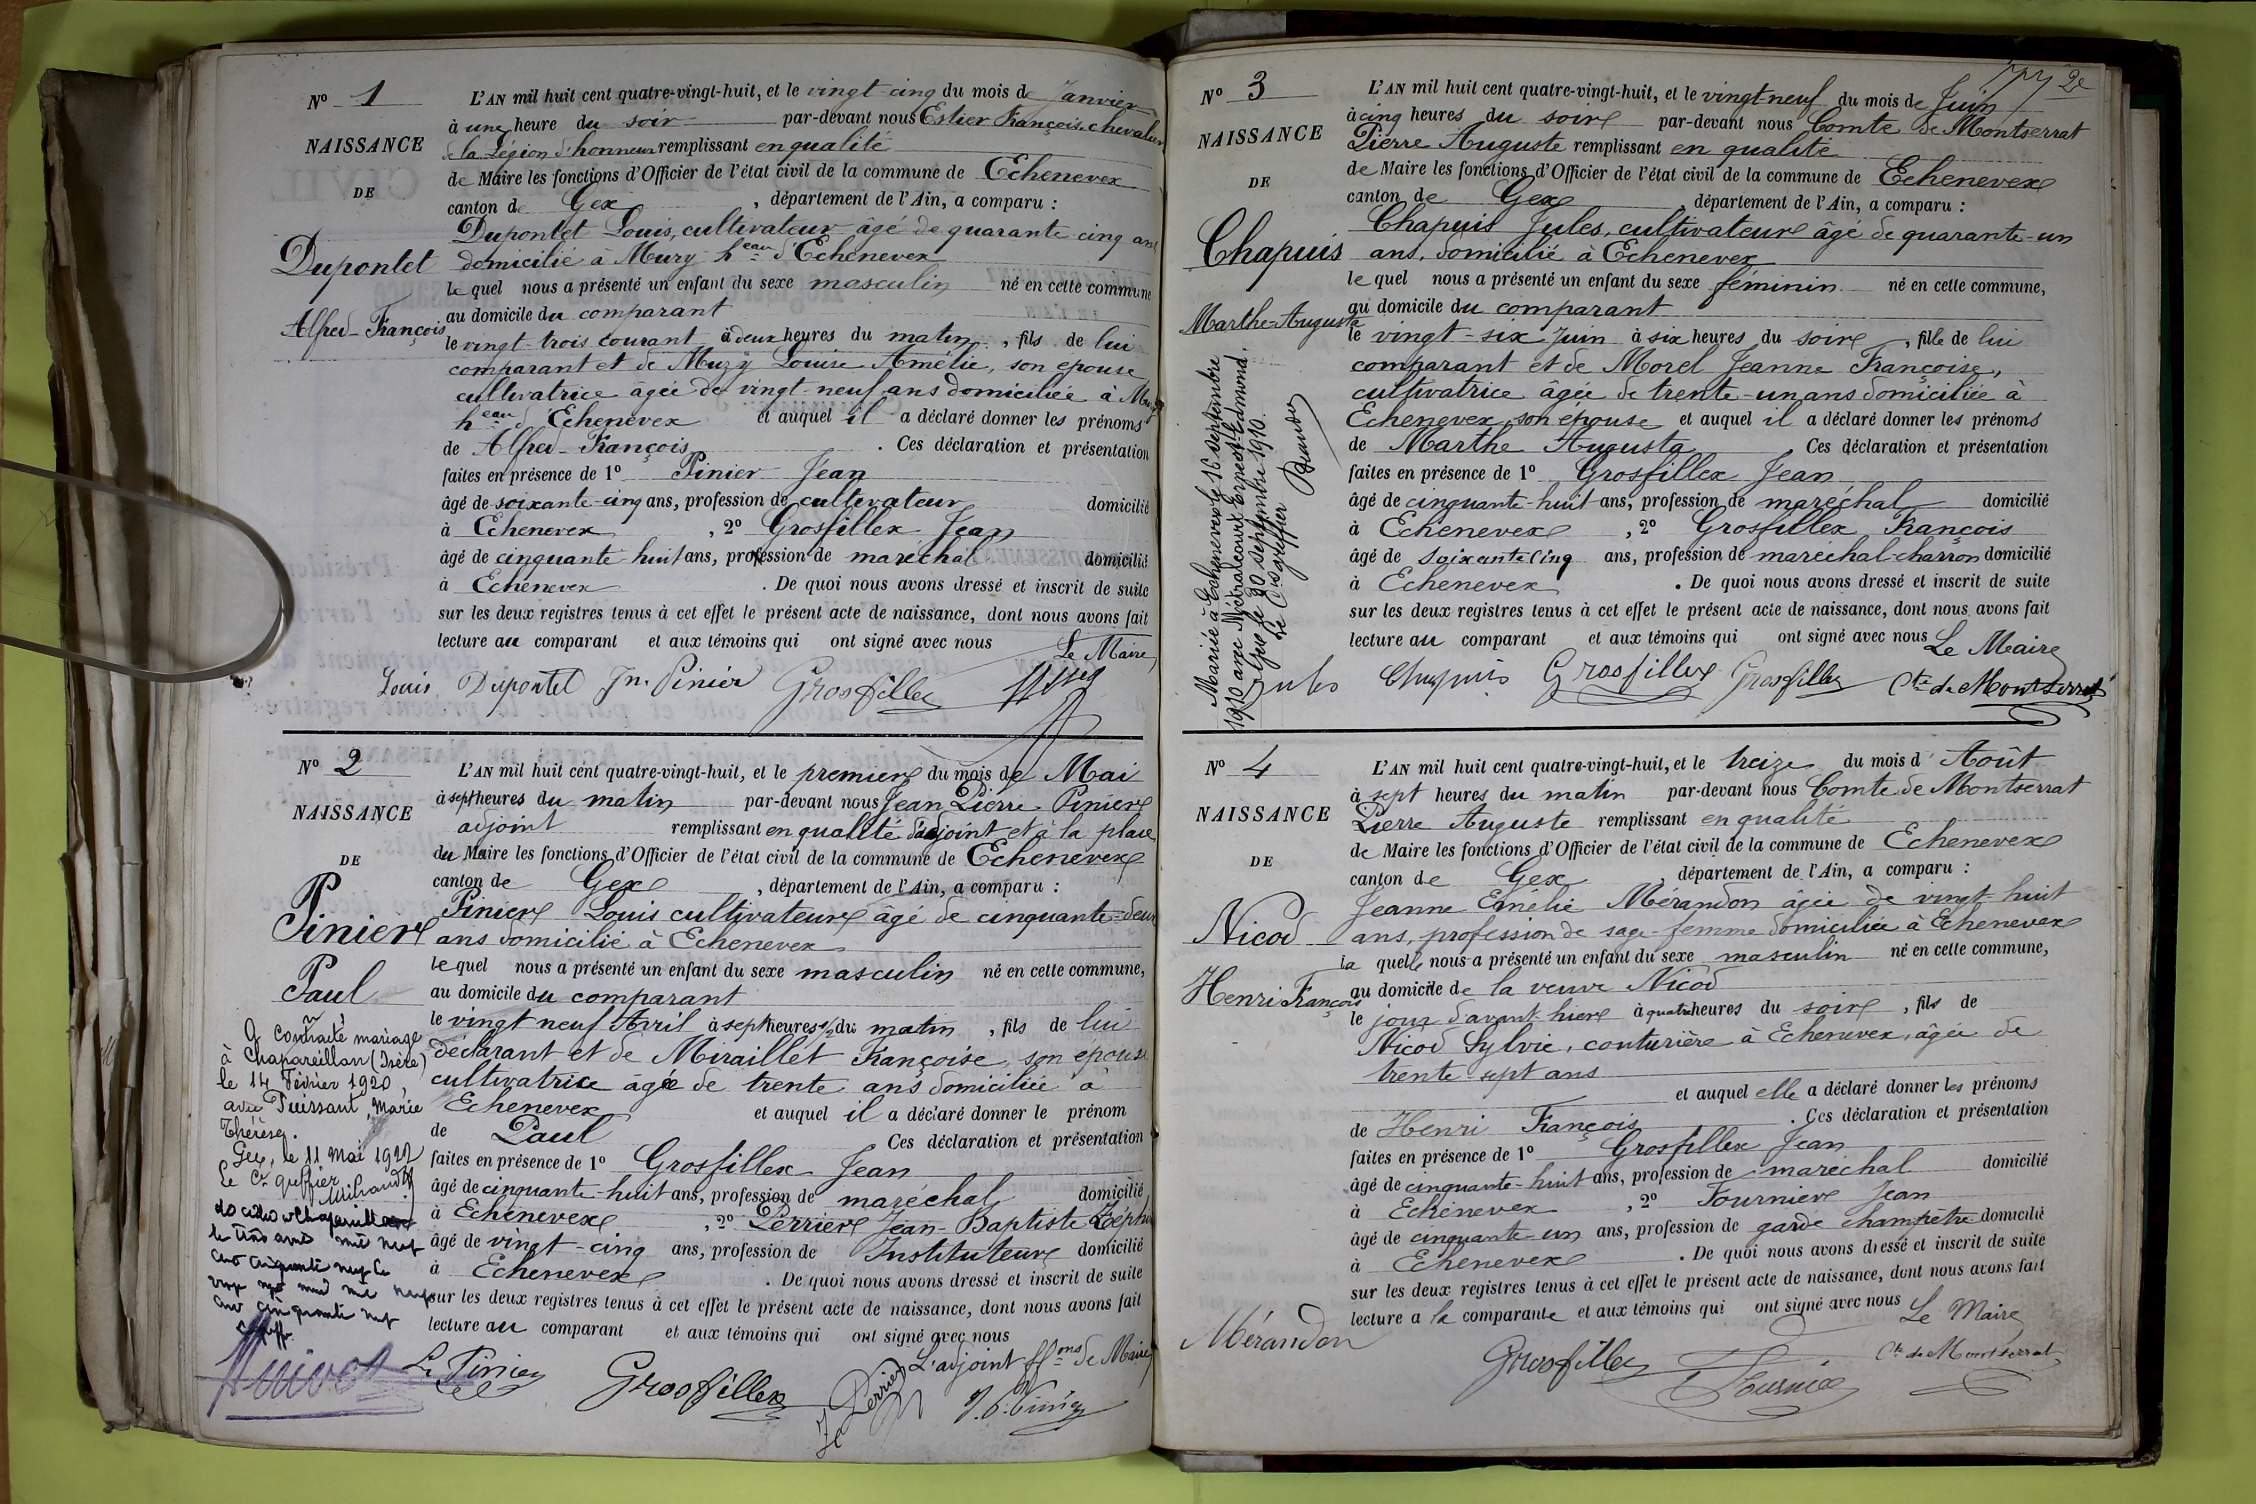 N° 1
NAISSANCE
DE
Dupontet
Alfred-François
L'AN mil huit cent quatre-vingt-huit, et le vingt-cinq du mois de Janvier
à une heure du soir par-devant nous Estier François, chevalier
de la Légion d'honneur remplissant en qualité
de Maire les fonctions d'Officier de l'état civil de la commune de Echenevex
canton de Gex, département de l'Ain, a comparu :
Dupontet Louis, cultivateur âgé de quarante-cinq ans
domicilié à Mury heau d'Echenevex
le quel nous a présenté un enfant du sexe masculin né en cette commune
au domicile du comparant
le vingt-trois courant à deux heures du matin, fils de lui
comparant et de Muzy Louise Amélie, son epouse
cultivatrice âgée de vingt-neuf ans domiciliée à Mury
heau d'Echenevex et auquel il a déclaré donner les prénoms
de Alfred-François. Ces déclaration et présentation
faites en présence de 1° Pinier Jean
âgé de soixante-cinq ans, profession de cultivateur domicilié
à Echenevex, 2° Grosfillex Jean
âgé de cinquante-huit ans, profession de maréchal domicilié
à Echenevex. De quoi nous avons dressé et inscrit de suite
sur les deux registres tenus à cet effet le présent acte de naissance, dont nous avons fait
lecture au comparant et aux témoins qui ont signé avec nous
Le Maire
Louis Dupontet Jn. Pinier Grosfillex
N° 2
NAISSANCE
DE
Pinier
Paul
A contracté mariage
à Chapareillan (Isère)
le 14 Février 1920,
avec Puissant, Marie
Thérèse.
Gex, le 11 Mai 1922
Le Cs greffier
L'AN mil huit cent quatre-vingt-huit, et le premier du mois de Mai
à sept heures du matin par-devant nous Jean Pierre Pinier
adjoint remplissant en qualité d'adjoint et à la place
du Maire les fonctions d'Officier de l'état civil de la commune de Echenevex
canton de Gex, département de l'Ain, a comparu :
Pinier Louis cultivateur âgé de cinquante-deux
ans domicilié à Echenevex
le quel nous a présenté un enfant du sexe masculin né en cette commune,
au domicile du comparant
le vingt neuf Avril à sept heures 1/2 du matin, fils de lui
déclarant et de Miraillet Françoise, son epouse
cultivatrice âgée de trente ans domiciliée à
Echenevex et auquel il a déclaré donner le prénom
de Paul Ces déclaration et présentation
faites en présence de 1° Grosfillex Jean
âgé de cinquante-huit ans, profession de maréchal domicilié
à Echenevex, 2° Perrier Jean-Baptiste Zéphir
âgé de vingt-cinq ans, profession de Instituteur domicilié
à Echenevex. De quoi nous avons dressé et inscrit de suite
sur les deux registres tenus à cet effet le présent acte de naissance, dont nous avons fait
lecture au comparant et aux témoins qui ont signé avec nous
L'adjoint ffons de Maire
Ls Pinier Grosfillex Perrier J. P. Pinier
N° 3
NAISSANCE
DE
Chapuis
Marthe-Augusta
Mariée à Echenevex le 16 septembre
1910 avec Métralcourt Ernest-Edmond.
Gex le 20 septembre 1910.
Le Cs greffier
2e
L'AN mil huit cent quatre-vingt-huit, et le vingt neuf du mois de Juin
à cinq heures du soir par-devant nous Comte de Montserrat
Pierre Auguste remplissant en qualité
de Maire les fonctions d'Officier de l'état civil de la commune de Echenevex
canton de Gex, département de l'Ain, a comparu :
Chapuis Jules, cultivateur âgé de quarante-un
ans, domicilié à Echenevex
le quel nous a présenté un enfant du sexe féminin né en cette commune,
au domicile du comparant
le vingt-six Juin à six heures du soir, fille de lui
comparant et de Morel Jeanne Françoise,
cultivatrice âgée de trente-un ans domiciliée à
Echenevex son épouse et auquel il a déclaré donner les prénoms
de Marthe Augusta Ces déclaration et présentation
faites en présence de 1° Grosfillex Jean
âgé de cinquante-huit ans, profession de maréchal domicilié
à Echenevex, 2° Grosfillex François
âgé de soixante cinq ans, profession de maréchal-charron domicilié
à Echenevex. De quoi nous avons dressé et inscrit de suite
sur les deux registres tenus à cet effet le présent acte de naissance, dont nous avons fait
lecture au comparant et aux témoins qui ont signé avec nous Le Maire
Jules Chapuis Grosfillex Grosfillex Cte de Montserrat
N° 4
NAISSANCE
DE
Nicod
Henri François
L'AN mil huit cent quatre-vingt-huit, et le treize du mois d'Août
à sept heures du matin par-devant nous Comte de Montserrat
Pierre Auguste remplissant en qualité
de Maire les fonctions d'Officier de l'état civil de la commune de Echenevex
canton de Gex, département de l'Ain, a comparu :
Jeanne Emélie Mérandon âgée de vingt-huit
ans, profession de sage-femme domiciliée à Echenevex
la quelle nous a présenté un enfant du sexe masculin né en cette commune,
au domicile de la veuve Nicod
le jour d'avant hier à quatre heures du soir, fils de
Nicod Sylvie, couturière à Echenevex, âgée de
trente-sept ans
et auquel elle a déclaré donner les prénoms
de Henri François. Ces déclaration et présentation
faites en présence de 1° Grosfillex Jean
âgé de cinquante-huit ans, profession de maréchal domicilié
à Echenevex, 2° Fournier Jean
âgé de cinquante-un ans, profession de garde champêtre domicilié
à Echenevex. De quoi nous avons dressé et inscrit de suite
sur les deux registres tenus à cet effet le présent acte de naissance, dont nous avons fait
lecture a la comparante et aux témoins qui ont signé avec nous Le Maire
Mérandon Grosfillex Fournier Cte de Montserrat